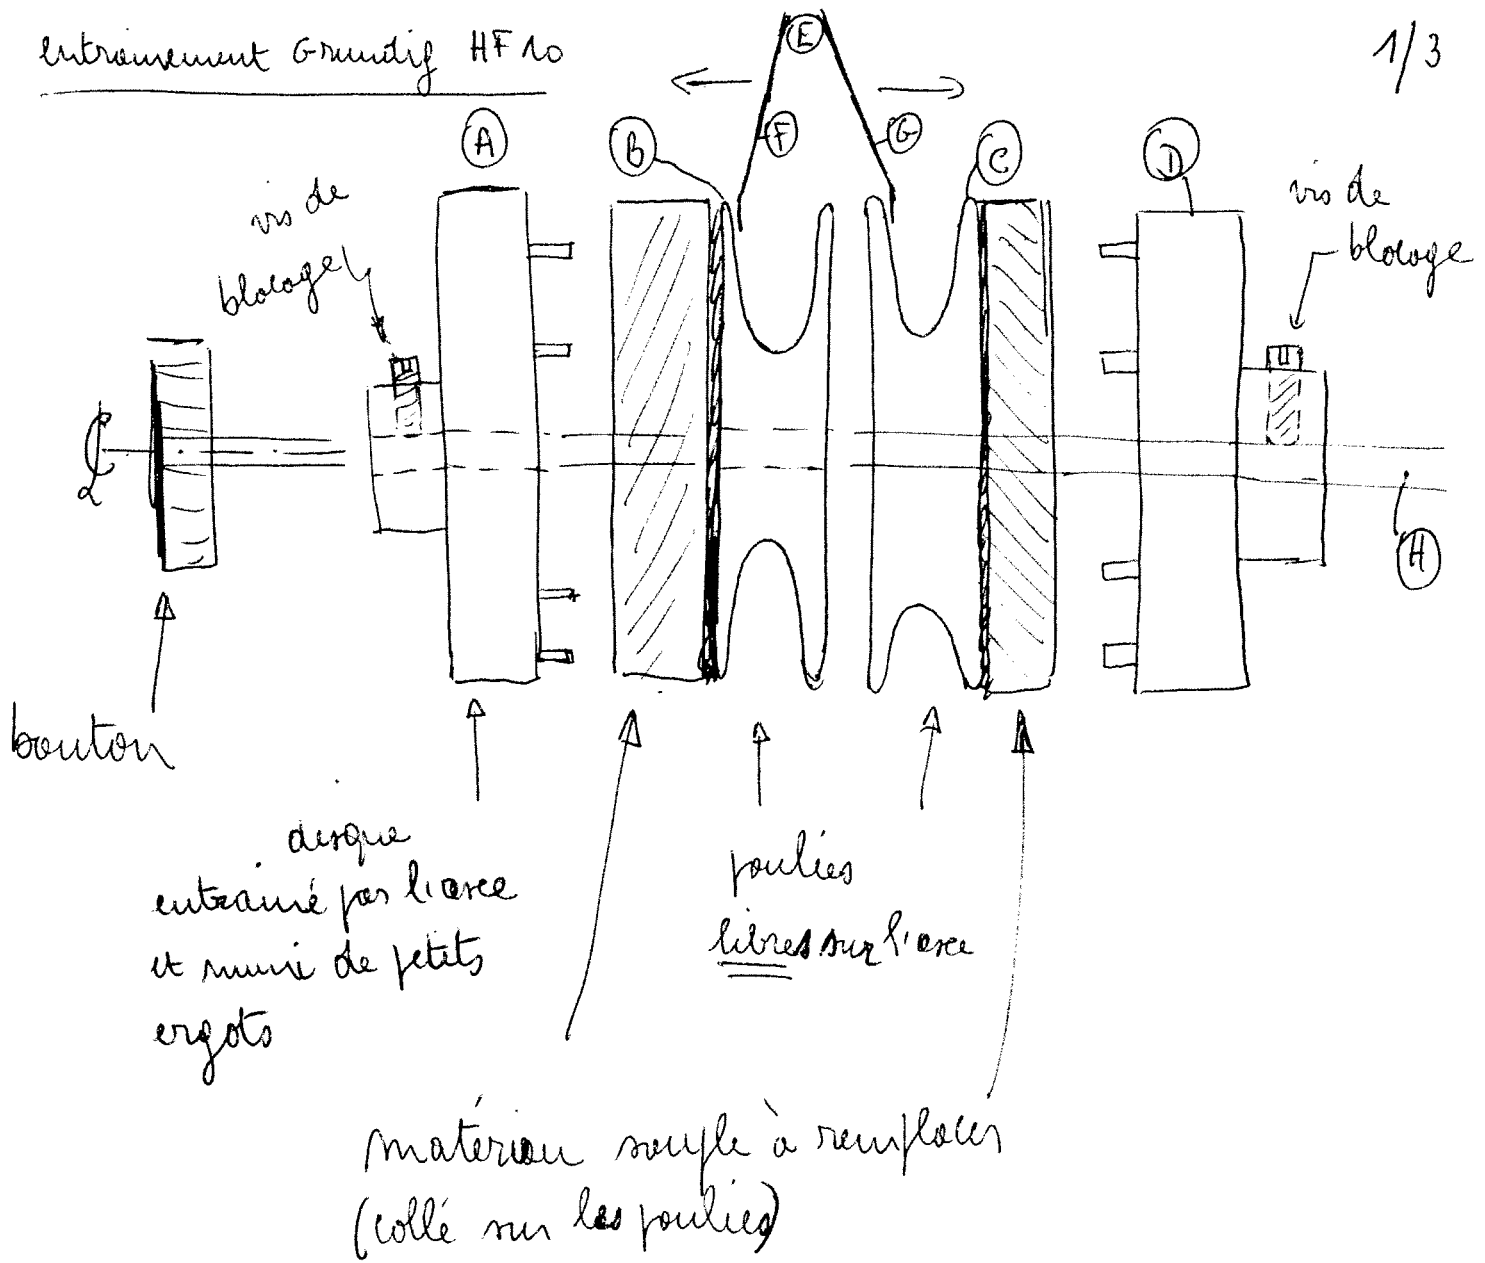 entrainement Grundig HF10
1/3
E
A
B
F
G
C
D
vis de
blocage
vis de
blocage
H
bouton
disque
entrainé par l'axe
et muni de petits
ergots
poulies
libres sur l'axe
matériau souple à remplacer
(collé sur les poulies)